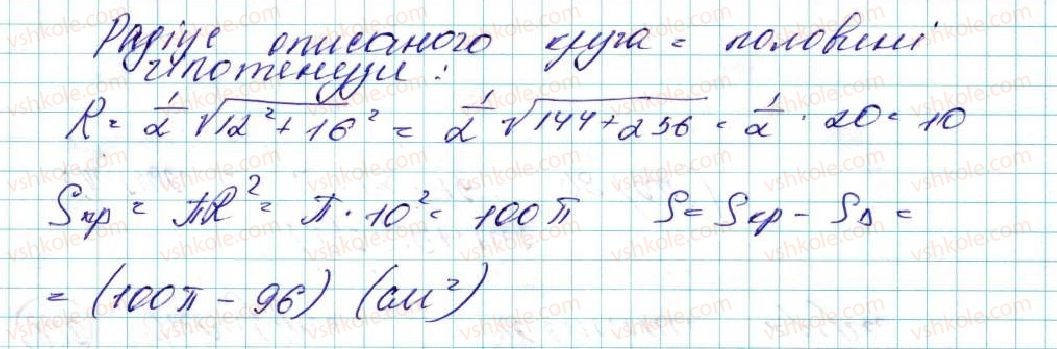 Радіус описаного круга = половині
гіпотенузи :
R = 1/2 √12² + 16² = 1/2 √144 + 256 = 1/2 · 20 = 10
Sкр = πR² = π · 10² = 100π S = Sкр - S∆ =
= (100π - 96) (см²)